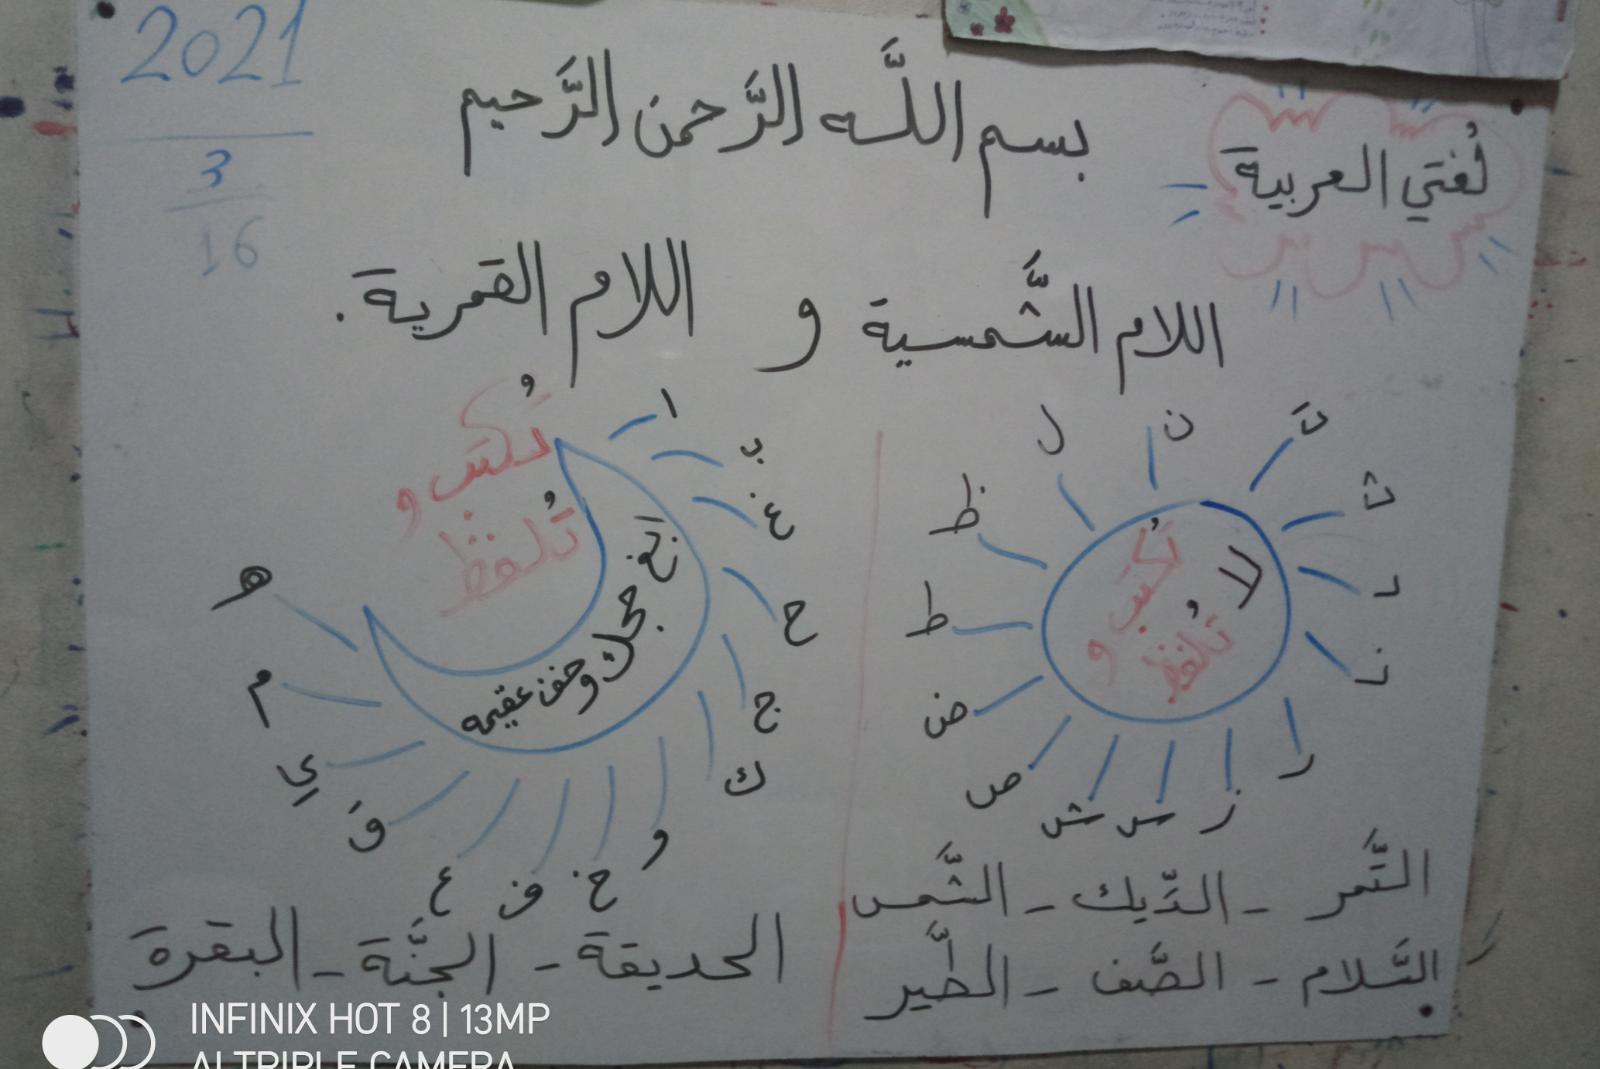 2021
3
16
بسم اللَّه الرَّحمن الرَّحيم
لُغتي العربية
اللام الشَّمسية و اللام القمرية.
ت
ث
د
ذ
ر
ز
س
ش
ص
ض
ط
ظ
ل
ن
تُكتب و
لا تُلفظ
ا
ب
غ
ح
ج
ك
و
خ
ف
ع
ق
ي
م
هـ
تُكتب و
تُلفظ
حجك وخف عقيمه
التَّمر - الدِّيك - الشَّمس
السَّلام - الصَّف - الطَّير
الحديقة - الجنَّة - البقرة
INFINIX HOT 8 | 13MP
AI TRIPLE CAMERA